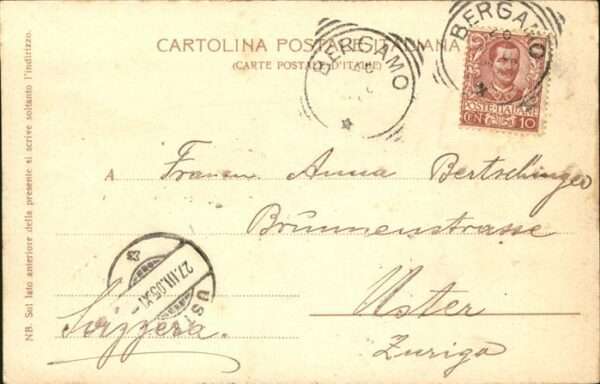 CARTOLINA POSTALE ITALIANA
(CARTE POSTALE D'ITALIE)
BERGAMO
BERGAMO
POSTE ITALIANE
CEN 10
A Frauen Anna Bertschinger
Brunnenstrasse
Uster
Zurigo
Svizzera.
27.III.05.XI
US
NB. Sul lato anteriore della presente si scrive soltanto l'indirizzo.